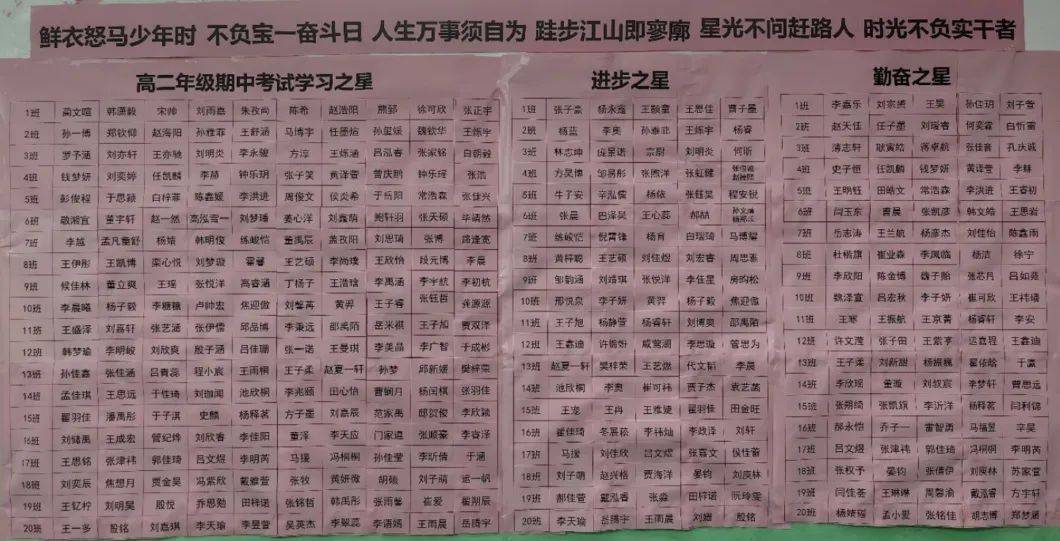 鲜衣怒马少年时 不负宝一奋斗日 人生万事须自为 跬步江山即寥廓 星光不问赶路人 时光不负实干者
高二年级期中考试学习之星
1班 蔺文暄 韩潇毅 宋帅 刘雨嘉 朱孜尚 陈希 赵浩阳 熊郅 徐可欣 张正宇
2班 孙一博 郑钦仰 赵海阳 孙雅菲 王舒涵 马博宇 任墨焓 孙玺媛 魏钦华 王烁宇
3班 罗予涵 刘亦轩 王亦驰 刘明炎 李永骏 方淳 王烁涵 吕泓春 张家铭 白朝毅
4班 钱梦妍 刘奕婷 任凯麟 李赫 钟乐玥 张子笑 黄译萱 曾庆鹏 钟乐瑶 张浩
5班 彭俊程 于思颍 白梓菲 陈鑫媛 李洪进 周俊文 侯炎希 于岳阳 常浩森 张佳兴
6班 敬湘宜 董宇轩 赵一然 高泓雪一 刘梦瑶 姜心洋 刘鑫萌 鲍轩羽 张天硕 毕靖然
7班 李越 孟凡董舒 杨婧 韩明俊 练峻恺 董禹辰 盖孜阳 刘思琦 张博 路逢宽
8班 王伊彤 王凯博 栾心悦 刘梦璇 霍馨 王艺硕 李尚璞 王欣怡 段元博 李晨
9班 候佳林 董立爽 王瑶 张悦洋 高睿涵 丁杨子 王浩琀 李禹涵 李宇航 李初杭
10班 李晨曦 杨子毅 李糖糖 卢帅宏 焦迎傲 刘馨苒 黄羿 王子睿 张钰哲 龚源源
11班 王盛泽 刘嘉轩 张艺涵 张伊儒 邱岳博 李秉远 邵禹陌 岳米祺 王子旭 贾双泽
12班 韩梦瑜 李明峻 刘欣爽 殷子涵 吕佳珊 张一诺 王曼琪 李美晶 李广智 于成彬
13班 孙佳鑫 张佳涵 吕青蕊 程小宸 王雨桐 王子柔 赵夏一轩 孙梦 邱新媛 樊梓荣
14班 孟佳琪 王思远 于佳琦 刘珈闻 池欣航 李兆颐 田心怡 曹娴月 杨闰棋 张羽佳
15班 翟羽佳 潘禹彤 于子淇 史麟 杨释茗 方子墨 刘嘉辰 范家禹 邸贺俊 李欣颖
16班 刘储禹 王成宏 管纪烨 刘欣睿 李佳阳 董泽 李天应 门家道 张顺豪 李睿泽
17班 王思铭 张津祎 郭佳琦 吕文煜 李明芮 马援 冯桐桐 孙佳莹 李昕倩 于涵
18班 刘奕辰 焦想月 贾金昊 冯紫欣 戴雅萱 张牧 黄妍微 胡硕 刘子萌 逄一帆
19班 王钇柠 刘明昊 殷悦 乔思勉 田梓诺 张锦哲 韩禹彤 张雨馨 崔爱 翟朔辰
20班 王一多 殷铭 刘嘉琪 李天瑜 李昱萱 吴英杰 李翠蕊 李语嫣 王雨晨 岳腾宇
进步之星
1班 张子豪 杨永鑫 王颢童 王思佳 曹子墨
2班 杨蓝 李奥 孙泰菲 王烁宇 杨睿
3班 林志坤 庞景诺 宗尉 刘明炎 何昕
4班 方昊博 邹易彤 张煦洋 张虹睫
5班 牛子安 辛泓儒 杨依 张钰昊 程安锐
6班 张晨 巴泽昊 王心蕊 郝喆
7班 练峻恺 倪霄锋 杨育 白瑞琦 马博玺
8班 黄梓聪 王艺硕 刘佳煜 刘宏睿 周思寒
9班 邹韵涵 刘靖琪 张悦洋 李佳星 房昀松
10班 邢悦泉 李子妍 黄羿 杨子毅 焦迎傲
11班 王子旭 杨静萱 杨睿轩 刘博奥 邵禹陌
12班 王鑫迪 许馨妍 戚莺涵 李思璇 管思为
13班 赵夏一轩 樊梓荣 王艺燃 代文韬 李晨
14班 池欣航 李奥 崔可祎 贾子杰 袁艺菡
15班 王宠 王冉 王雅婕 翟羽佳 田金旺
16班 崔佳琦 冬展崧 李祎灿 李政泽 刘轩
17班 马援 刘佳欣 吕文煜 张嘉文 侯佳蕾
18班 刘子萌 赵兴格 贾海洋 晏钧 刘庚林
19班 郝佳萱 戴泓睿 张淼 田梓诺 阮玲雯
20班 李天瑜 岳腾宇 王雨晨 刘媚 殷铭
勤奋之星
1班 李嘉乐 刘宗赟 王昊 孙仕玥 刘子萱
2班 赵天佳 任子墨 刘瑷睿 何奕霏 白忻雷
3班 薄志轩 耿寅皓 蒋卓航 张佳音 孔庆诚
4班 史子恒 任凯麟 钱梦妍 黄译萱 李赫
5班 王明钰 田皓文 常浩森 李洪进 王睿初
6班 闫玉东 曹晨 张凯彦 韩文皓 王思岩
7班 岳志涛 王兰航 杨彦杰 刘佳怡 陈鑫雨
8班 杜楷旗 崔业森 李凤临 杨洁 徐宁
9班 李欣阳 陈金博 魏子贻 张芯凡 吕如菀
10班 魏泽宣 吕宏秋 李子妍 崔可欣 王祎璠
11班 王寒 王振航 王京菁 杨睿轩 李安
12班 许文滢 张子田 王紫亭 迟嘉程 王鑫迪
13班 王子柔 刘新甜 杨振巍 翟依晗 于赢
14班 李欣瑶 董璇 刘奴宸 李梦轩 曾思远
15班 张朔绮 张凯旗 李沂洋 杨释茗 闫利锦
16班 郝永恺 乔子一 雷智勇 马福昱 辛昊
17班 吕文煜 张津祎 郭佳琦 冯桐桐 李明芮
18班 张权予 晏钧 张倩伊 刘庚林 苏家萱
19班 闫佳荟 王琳琳 周馨渝 戴泓睿 方宇轩
20班 杨婧瑶 孟小爱 张铭佳 胡志博 郑梦涵